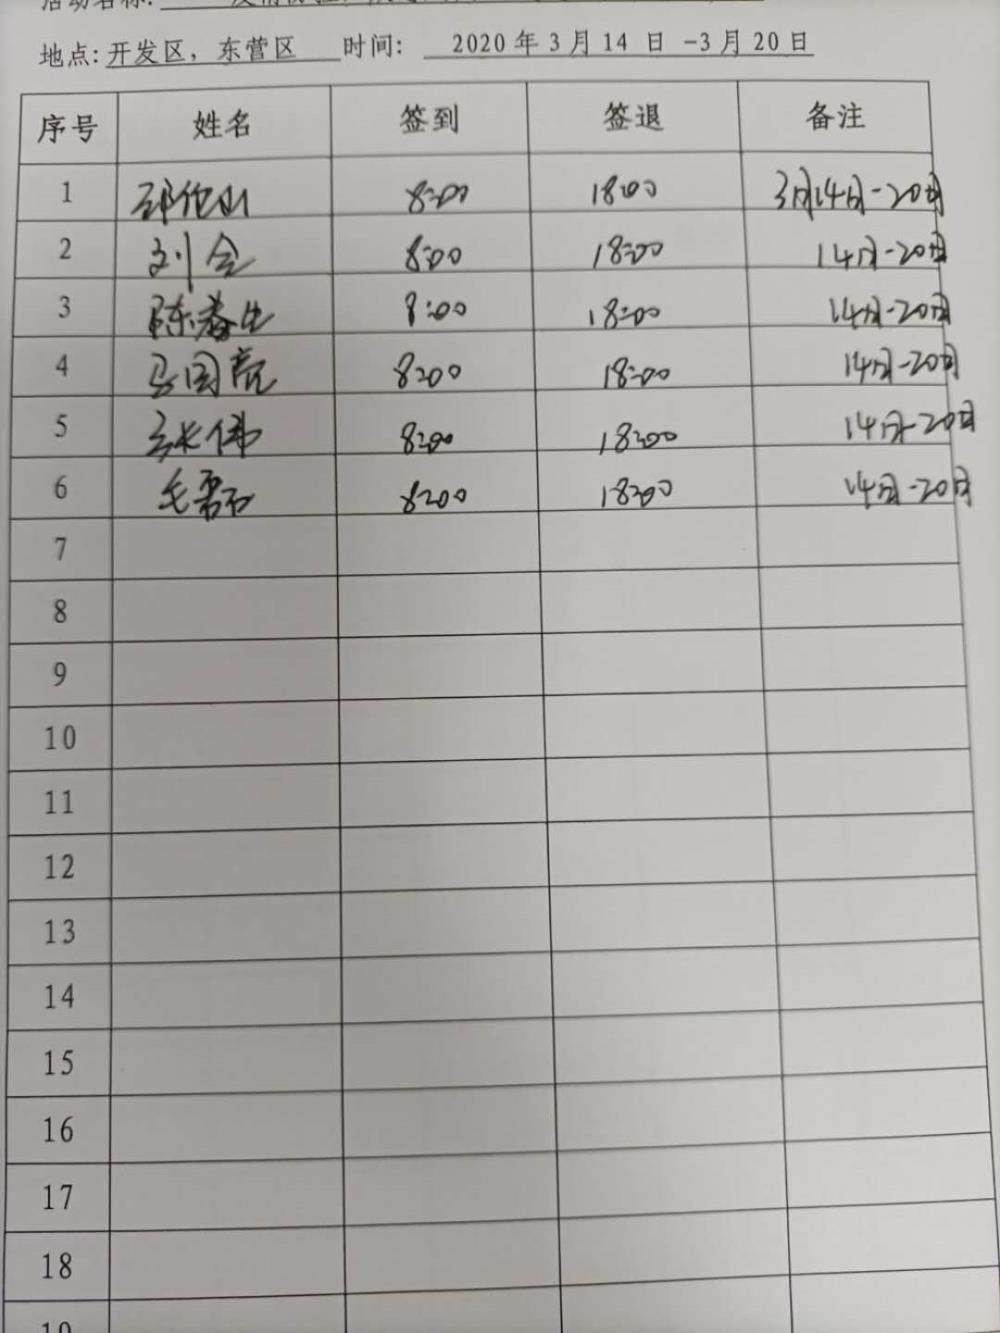 活动名称:
地点: 开发区，东营区 时间: 2020年3月14日-3月20日
序号 姓名 签到 签退 备注
1 8:00 18:00 3月14日-20日
2 刘会 8:00 18:00 14日-20日
3 陈春生 8:00 18:00 14日-20日
4 马国亮 8:00 18:00 14日-20日
5 张伟 8:00 18:00 14日-20日
6 8:00 18:00 14日-20日
7
8
9
10
11
12
13
14
15
16
17
18
19